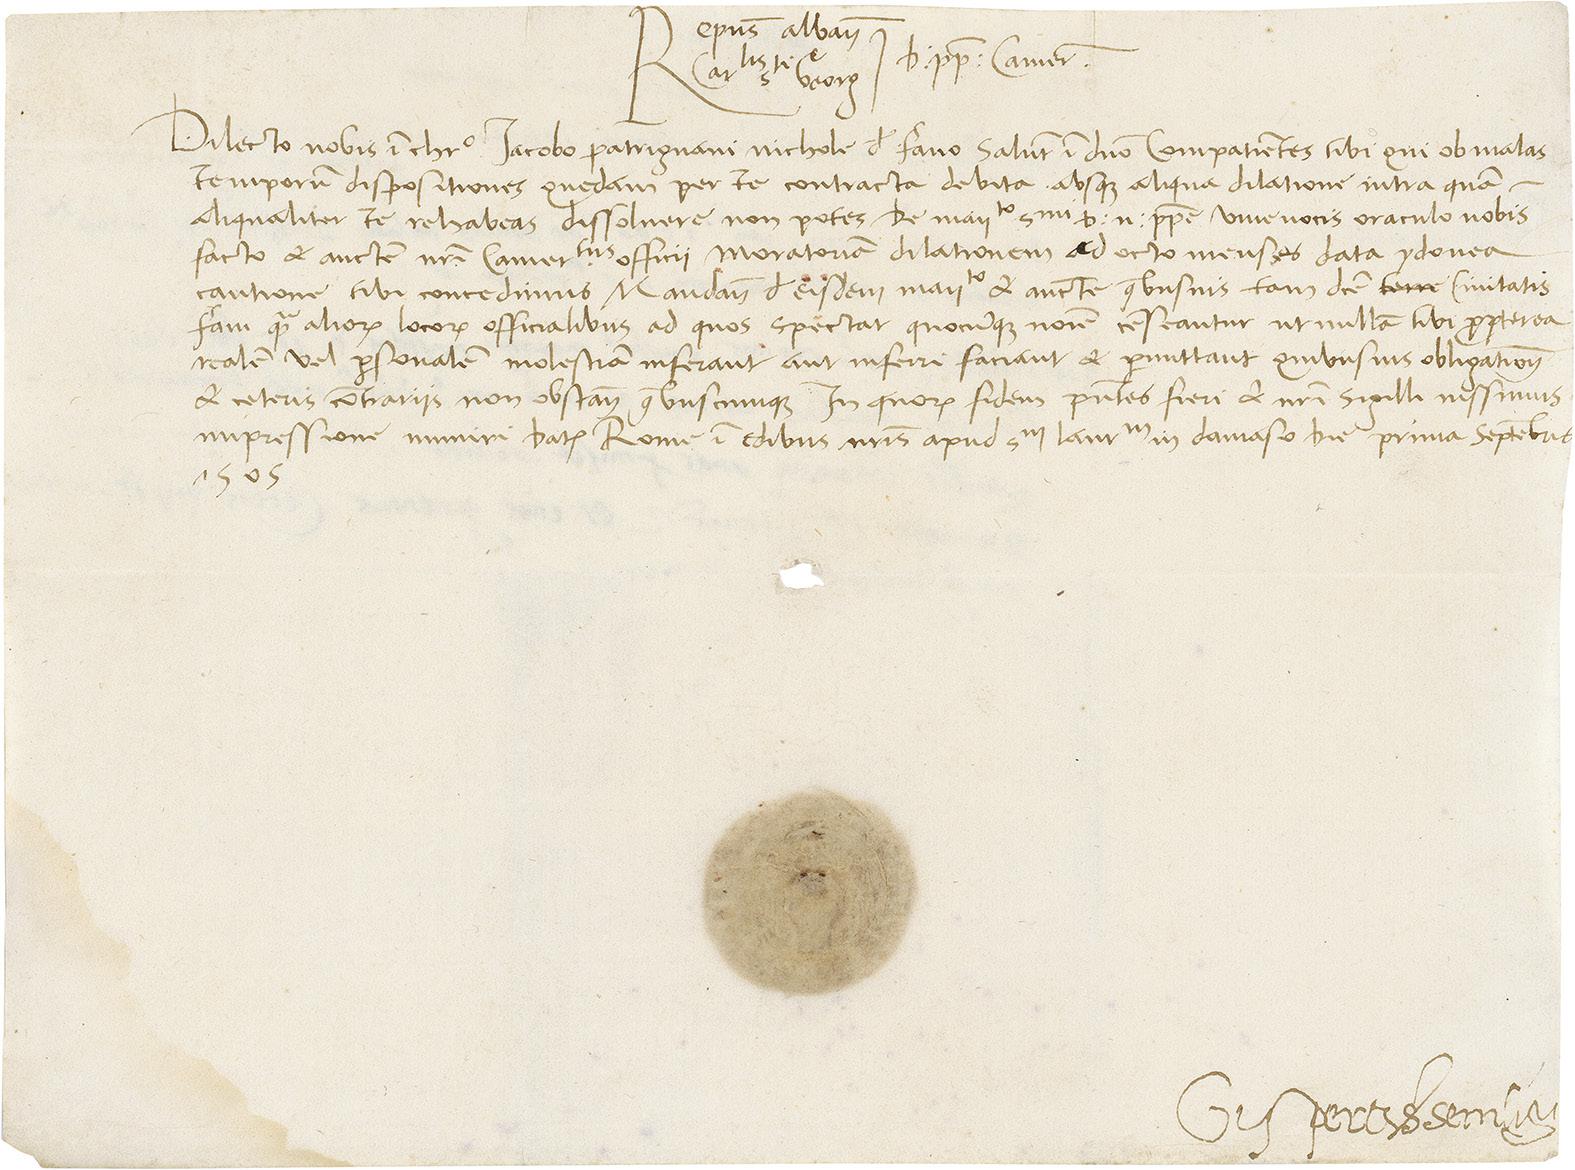 R epus alban
Carlis sti Georg D: pp: Camer.
Dilecto nobis ī chro Jacobo patrignani nichole d fano Salut ī dno Compatientes tibi qui ob malas
temporū dispositiones quedam per te contracta debita absq aliqua dilatione intra quā
aliqualiter te rehabeas dissolvere non potes De manto smi D: n: ppe vive vocis oraculo nobis
facto & aucte nri Camertus officii Moratoriā dilationem ad octo menses data ydonea
cautione tibi concedimus Mandan d eisdem manto & aucte qbusvis tam dce terre Civitatis
fani qua alior locor officialibus ad quos spectat quocūq noie cēseantur ut nullā tibi propterea
realē vel psonalē molestiā inferant aut inferri faciant & pmittant quibusvis obligation
& ceteris cōtrariis non obstan qbuscumque In quor fidem pntes fieri & nri Sigilli iussimus
impressione muniri Dat Rome ī Edibus nris apud sm laurm in damaso Die prima Septēbris
1505